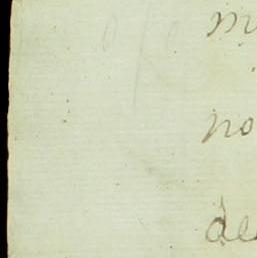 m
no
de